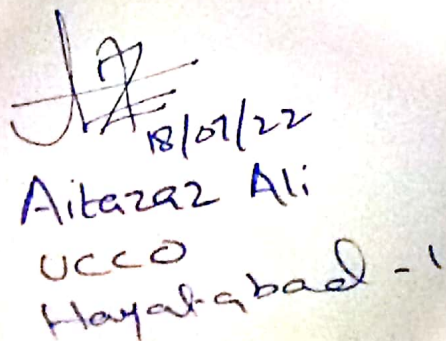 18/07/22
Aitazaz Ali
UCCO
Hayatabad - 1